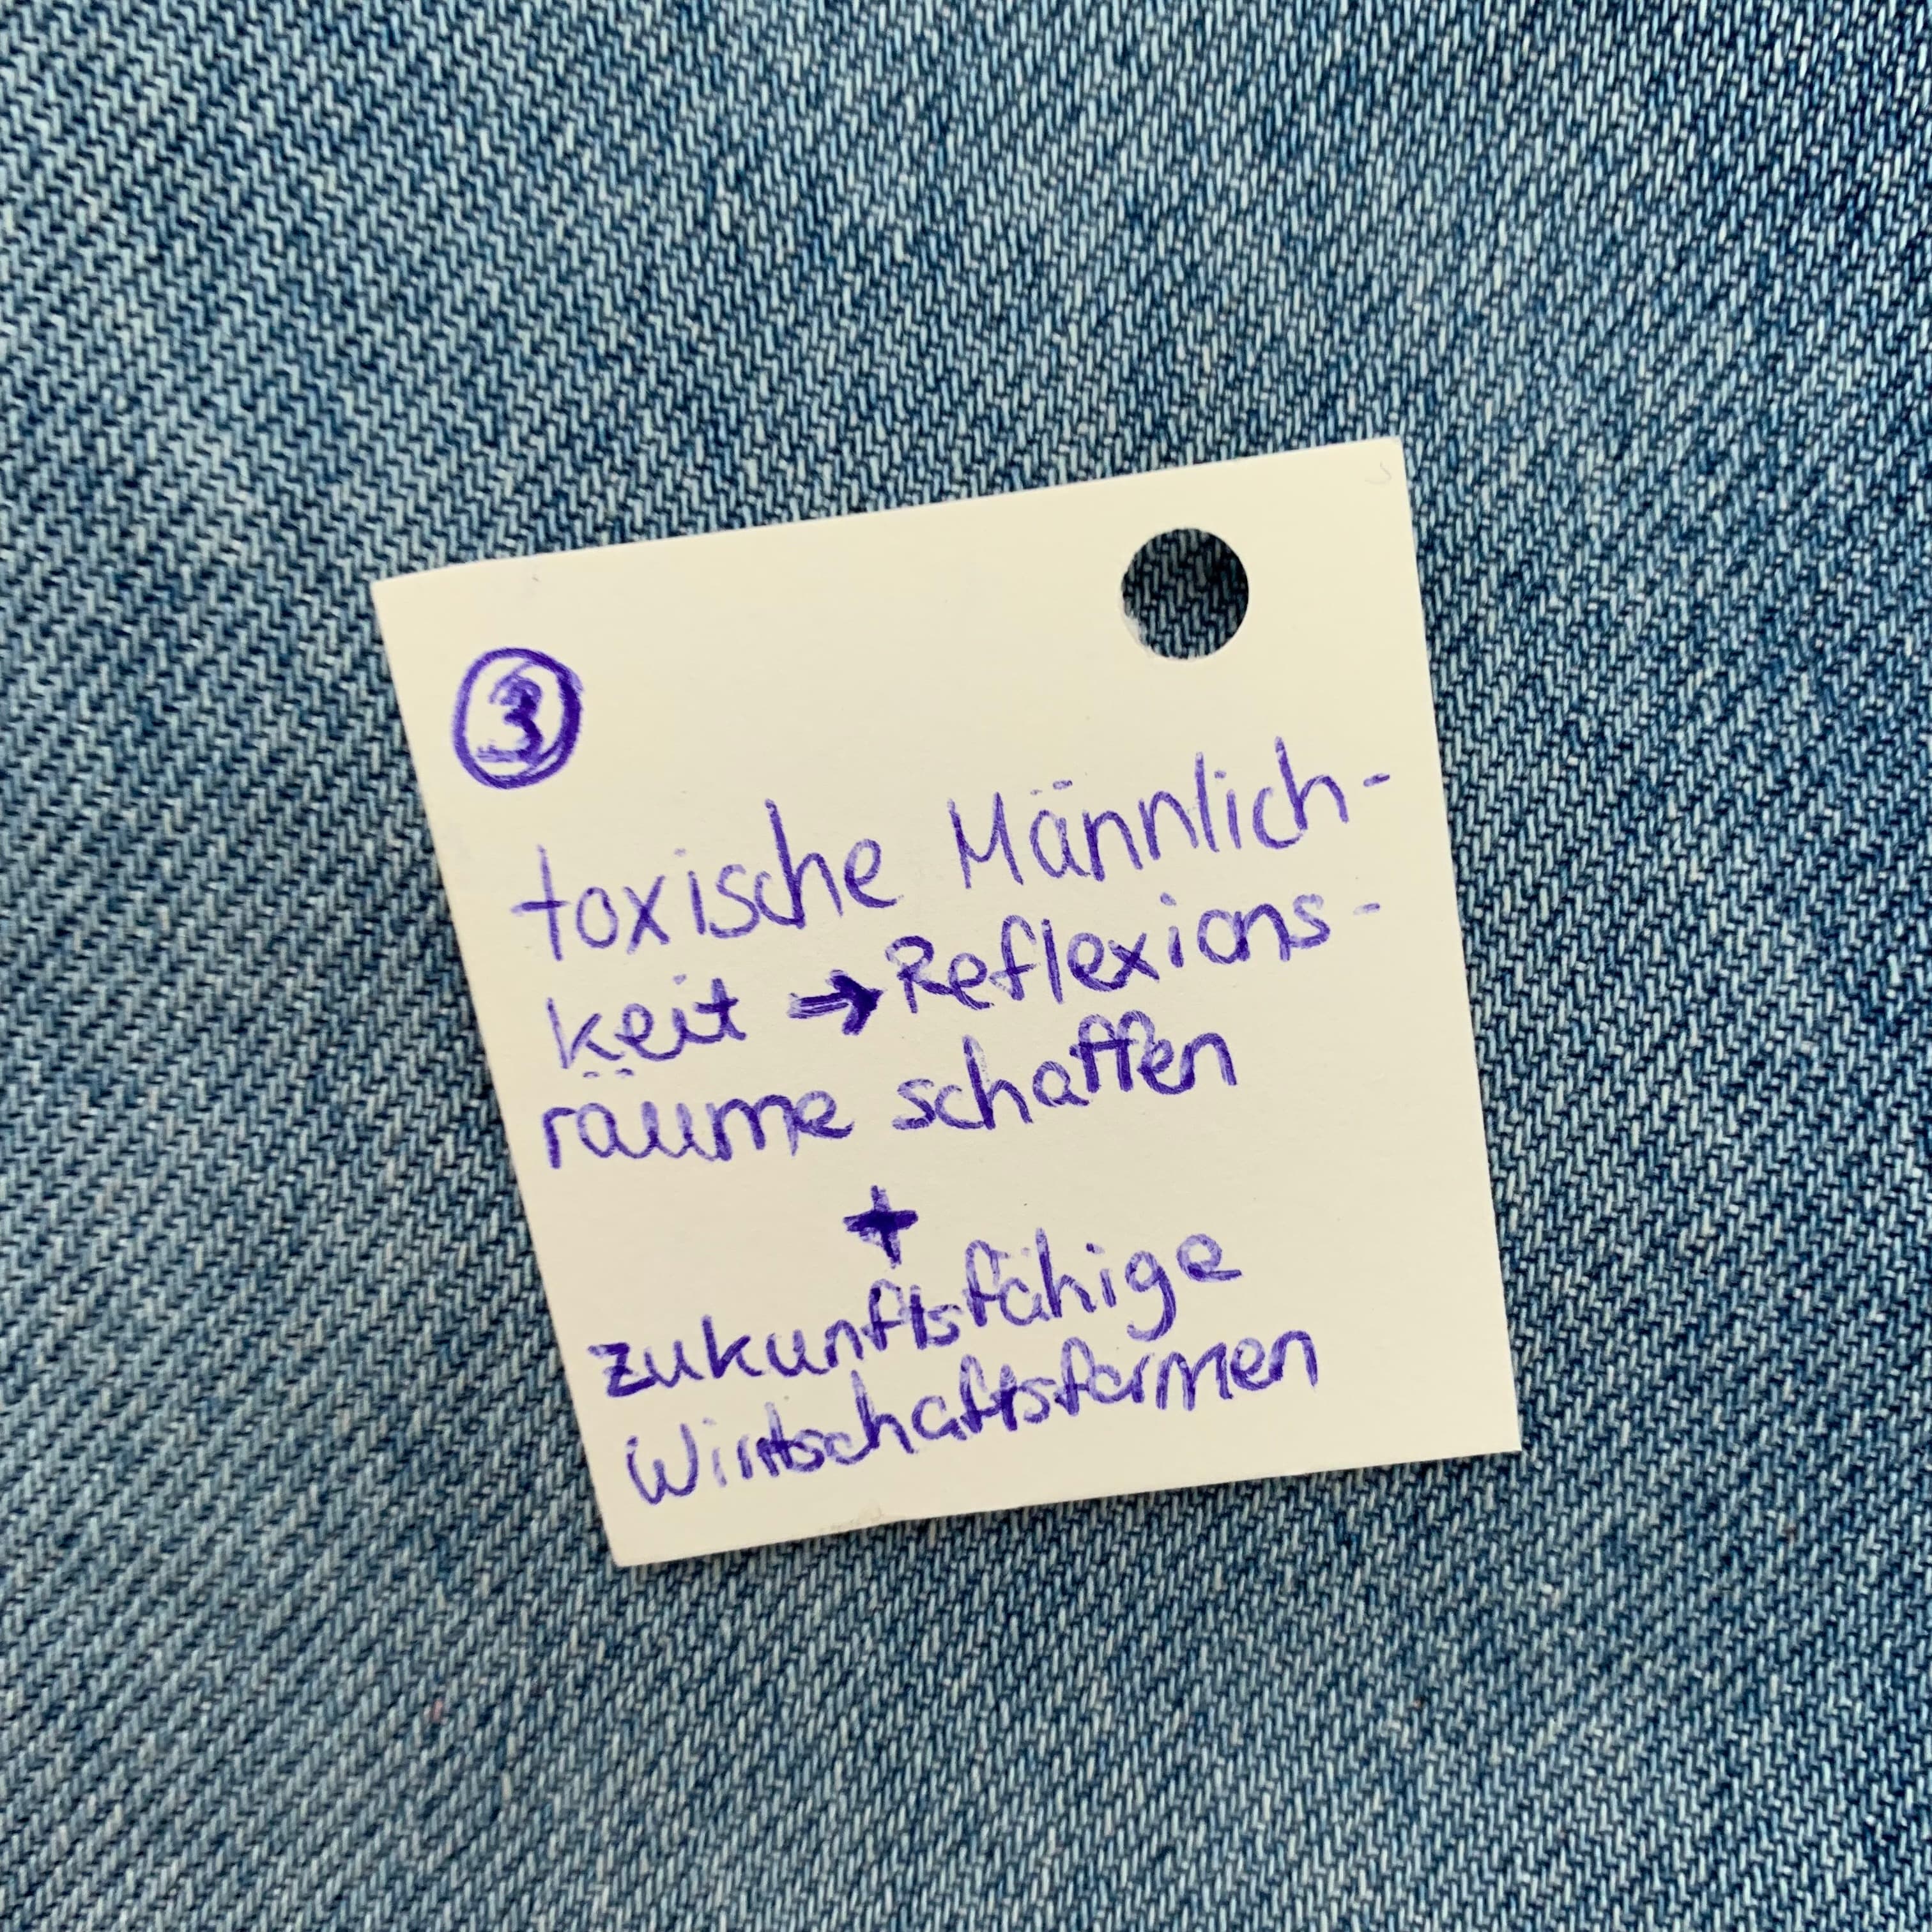 ③
toxische Männlich-
keit → Reflexions-
räume schaffen
+
zukunftsfähige
Wirtschaftsformen